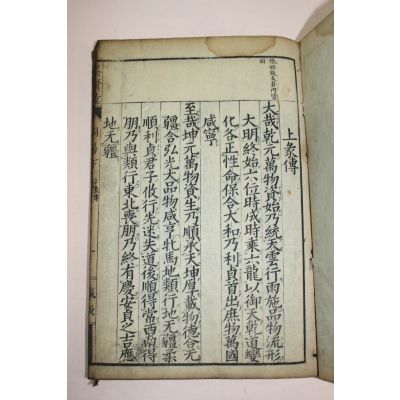 上彖傳
大哉乾元萬物資始乃統天雲行雨施品物流形
大明終始六位時成時乘六龍以御天乾道變
化各正性命保合大和乃利貞首出庶物萬國
咸寧
至哉坤元萬物資生乃順承天坤厚載物德合无
疆含弘光大品物咸亨牝馬地類行地无疆柔
順利貞君子攸行先迷失道後順得常西南得
朋乃與類行東北喪朋乃終有慶安貞之吉應
地无疆